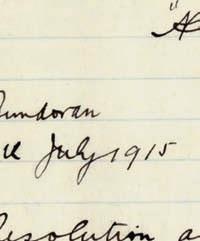 "A
Bundoran
July 1915
Resolution a